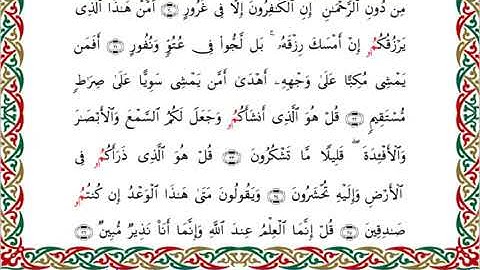 مِّن دُونِ ٱلرَّحْمَـٰنِ ۚ إِنِ ٱلْكَـٰفِرُونَ إِلَّا فِى غُرُورٍ ﴿٢٠﴾ أَمَّنْ هَـٰذَا ٱلَّذِى
يَرْزُقُكُمُۥ إِنْ أَمْسَكَ رِزْقَهُۥ ۚ بَل لَّجُّوا۟ فِى عُتُوٍّ وَنُفُورٍ ﴿٢١﴾ أَفَمَن
يَمْشِى مُكِبًّا عَلَىٰ وَجْهِهِۦٓ أَهْدَىٰٓ أَمَّن يَمْشِى سَوِيًّا عَلَىٰ صِرَٰطٍ
مُّسْتَقِيمٍ ﴿٢٢﴾ قُلْ هُوَ ٱلَّذِىٓ أَنشَأَكُمُۥ وَجَعَلَ لَكُمُ ٱلسَّمْعَ وَٱلْأَبْصَـٰرَ
وَٱلْأَفْـِٔدَةَ ۖ قَلِيلًا مَّا تَشْكُرُونَ ﴿٢٣﴾ قُلْ هُوَ ٱلَّذِى ذَرَأَكُمُۥ فِى
ٱلْأَرْضِ وَإِلَيْهِ تُحْشَرُونَ ﴿٢٤﴾ وَيَقُولُونَ مَتَىٰ هَـٰذَا ٱلْوَعْدُ إِن كُنتُمُۥ
صَـٰدِقِينَ ﴿٢٥﴾ قُلْ إِنَّمَا ٱلْعِلْمُ عِندَ ٱللَّهِ وَإِنَّمَآ أَنَا۠ نَذِيرٌ مُّبِينٌ ﴿٢٦﴾